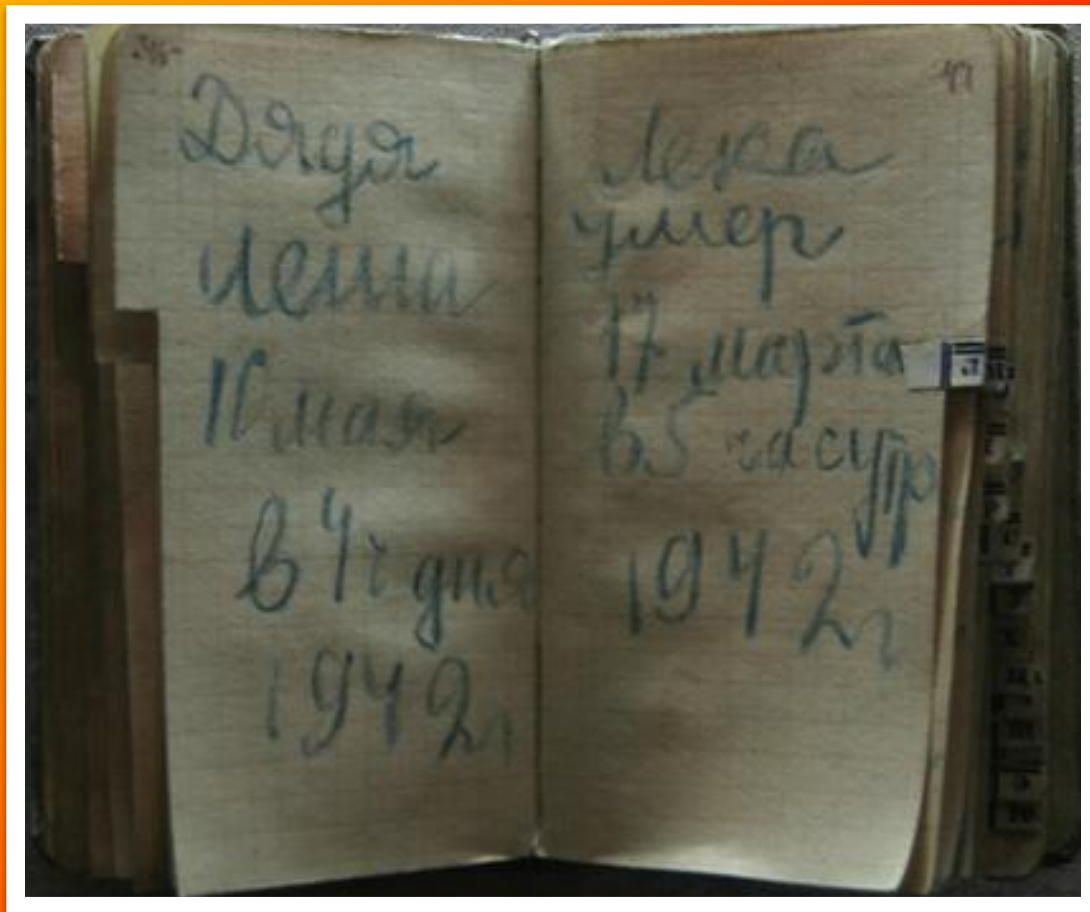 Дядя
Леша
10 мая
в 4 ч дня
1942 г
Лека
умер
17 марта
в 5 час утр
1942 г
Л